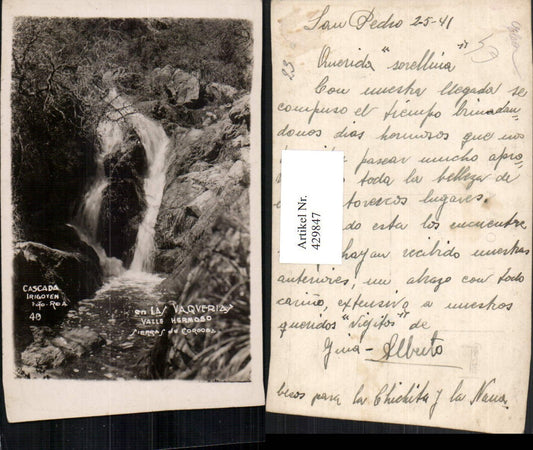 CASCADA
IRIGOYEN
FOTO-ROA
49
en LAS VAQUERIAS
VALLE HERMOSO
SIERRAS de CORDOBA
San Pedro 2-5-41
23
Querida "sorellina"
Con nuestra llegada se
compuso el tiempo brindan
donos dias hermosos que nos
pasear mucho apro
toda la belleza de
lugares.
esta los encuentre
hayan recibido nuestras
anteriores, un abrazo con todo
cariño, extensivo a nuestros
queridos "viejitos" de
Alberto
besos para la Chichita y la Nana.
Artikel Nr.
429847